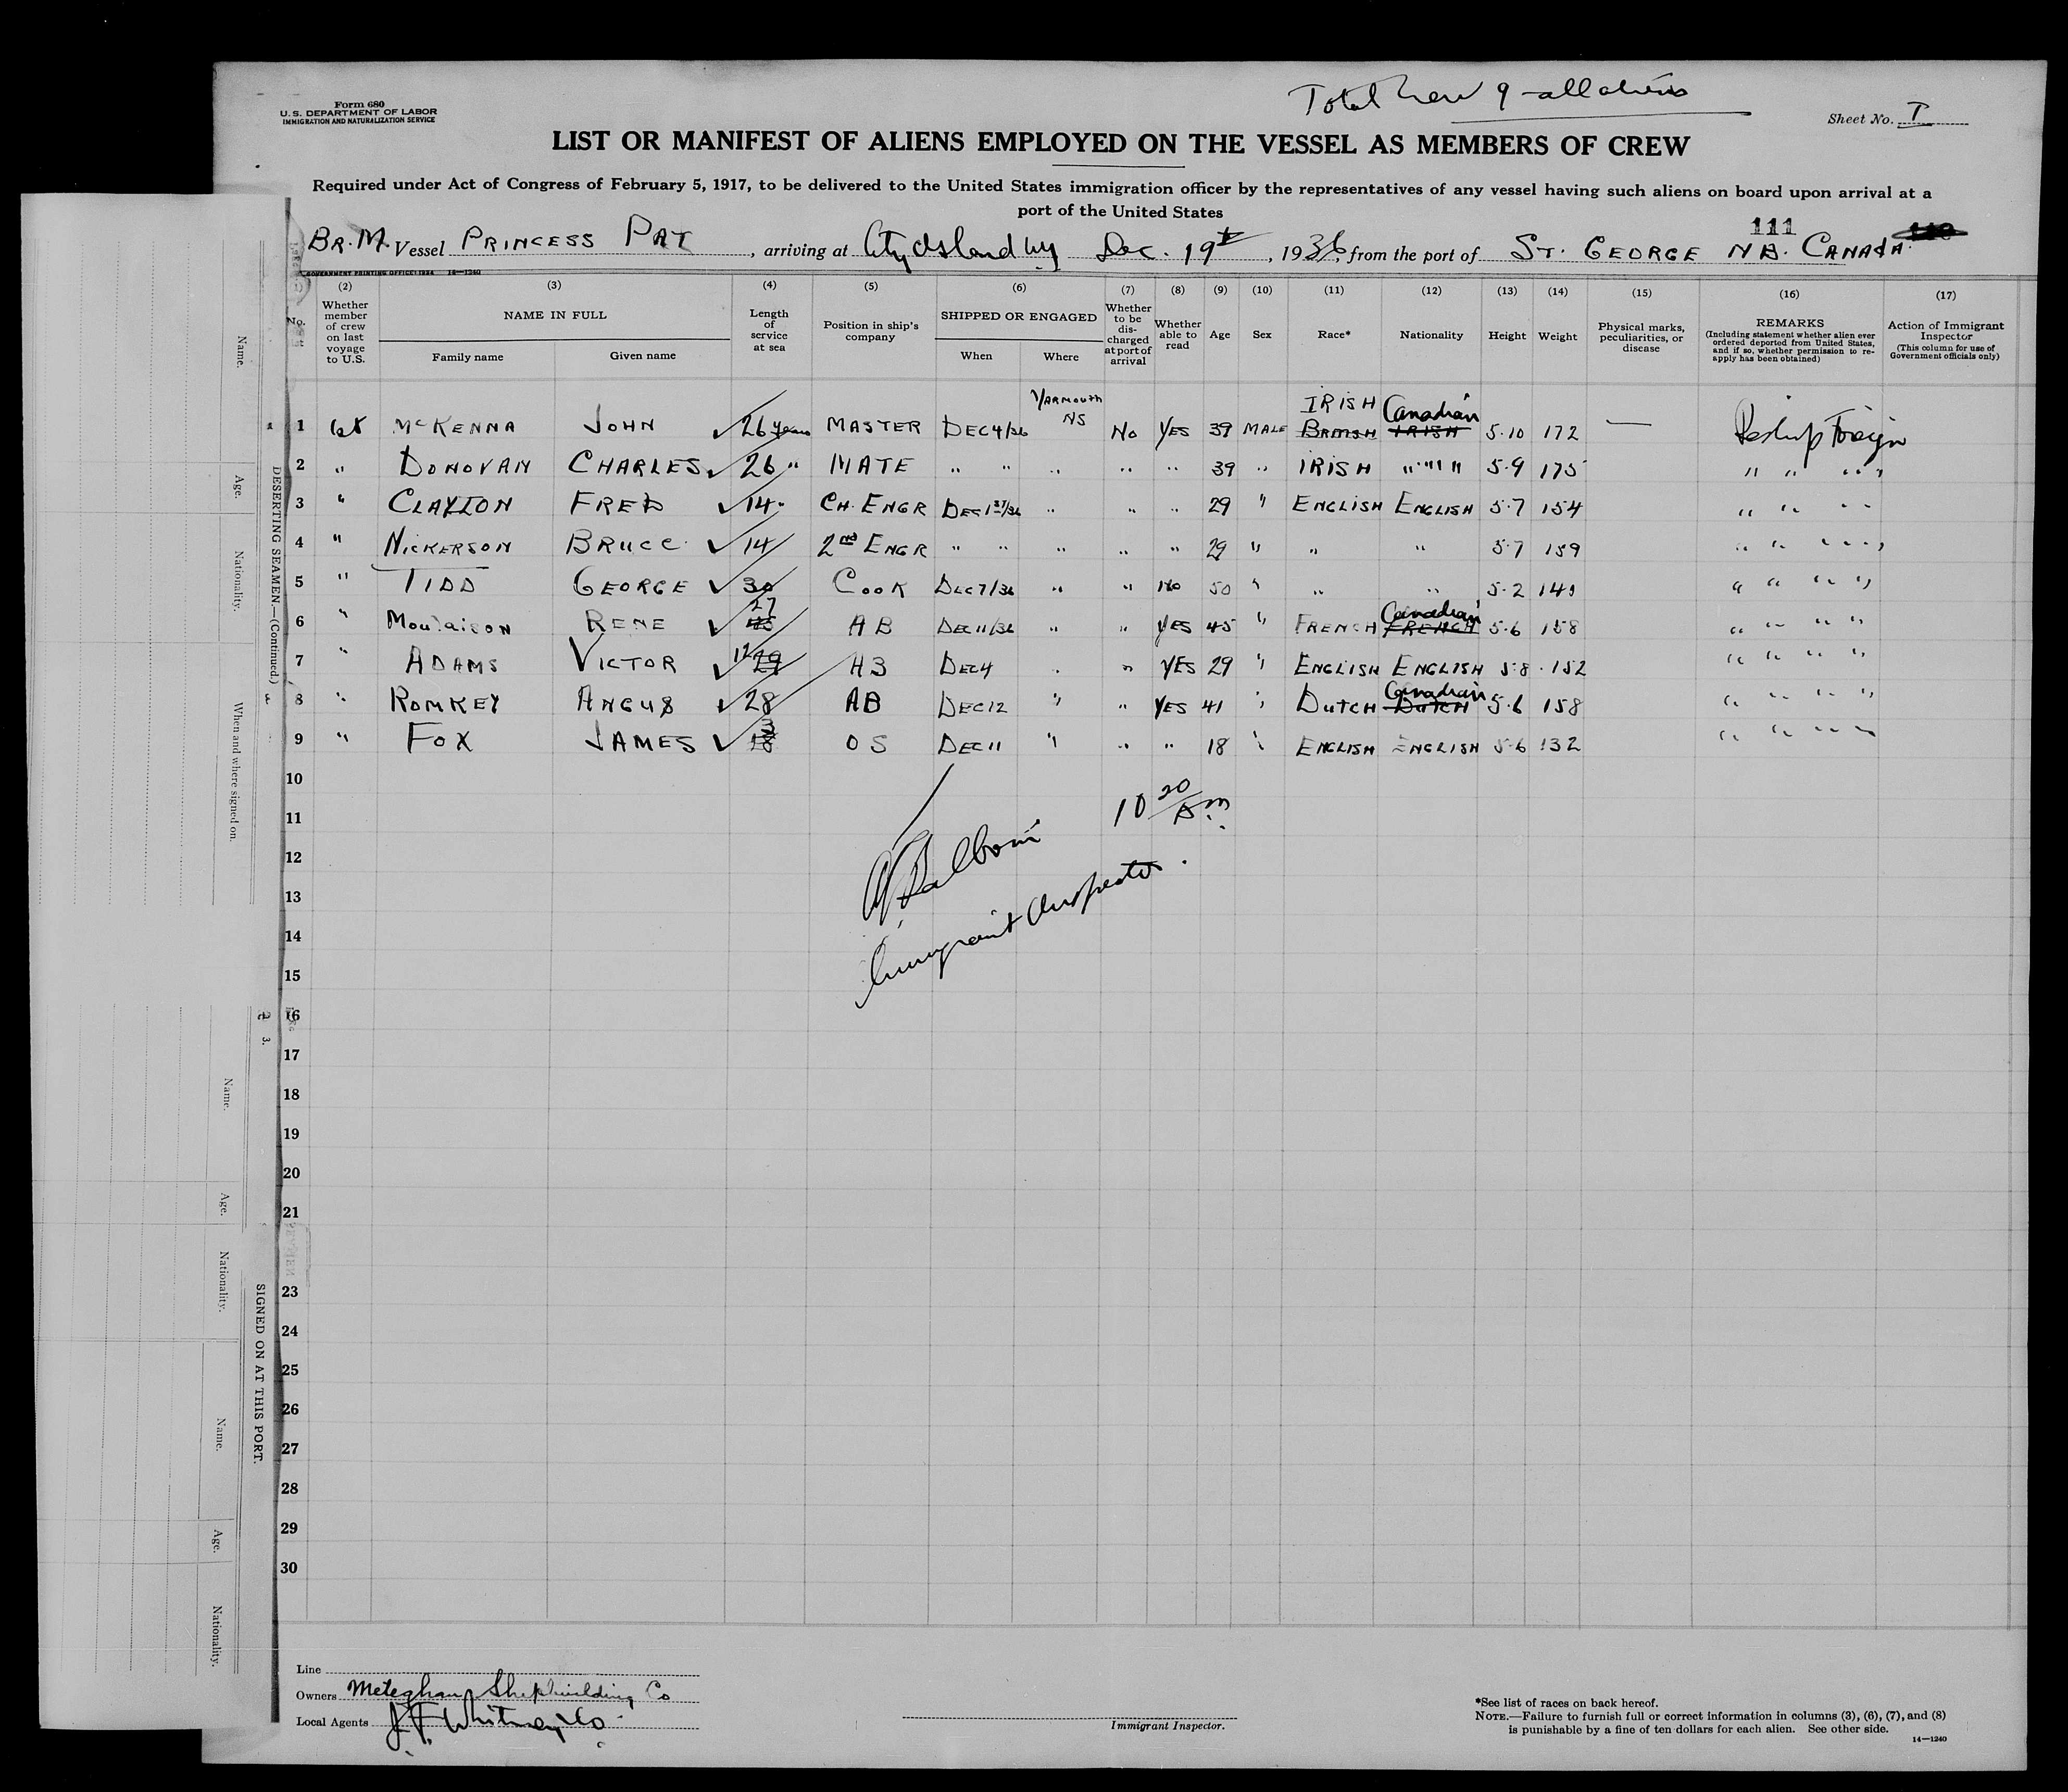 Total crew 9 - all aliens
Form 680
U. S. DEPARTMENT OF LABOR
IMMIGRATION AND NATURALIZATION SERVICE
Sheet No. I
LIST OR MANIFEST OF ALIENS EMPLOYED ON THE VESSEL AS MEMBERS OF CREW
Required under Act of Congress of February 5, 1917, to be delivered to the United States immigration officer by the representatives of any vessel having such aliens on board upon arrival at a
port of the United States
111
BR. M. Vessel PRINCESS PAT, arriving at City Island NY Dec. 19th, 1936, from the port of ST. GEORGE N B. CANADA.
GOVERNMENT PRINTING OFFICE: 1934 14—1240
(2) (3) (4) (5) (6) (7) (8) (9) (10) (11) (12) (13) (14) (15) (16) (17)
No. Whether member of crew on last voyage to U.S. NAME IN FULL Family name Given name Length of service at sea Position in ship's company SHIPPED OR ENGAGED When Where Whether to be discharged at port of arrival Whether able to read Age Sex Race* Nationality Height Weight Physical marks, peculiarities, or disease REMARKS (Including statement whether alien ever ordered deported from United States, and if so, whether permission to reapply has been obtained) Action of Immigrant Inspector (This column for use of Government officials only)
YARMOUTH NS IRISH Canadian
1 McKENNA JOHN ✓ 26 years MASTER DEC 4/36 No YES 39 MALE BRITISH IRISH 5·10 172 — Reship Foreign
2 " DONOVAN CHARLES ✓ 26 " MATE " " " " " 39 " IRISH " " 5·9 175 " " "
3 " CLAYTON FRED ✓ 14 " CH. ENGR DEC 1st/36 " " " 29 " ENGLISH ENGLISH 5·7 154 " " "
4 " NICKERSON BRUCE ✓ 14 2nd ENGR " " " " " 29 " " " 5·7 159 " " "
5 " TIDD GEORGE ✓ 30 COOK DEC 7/36 " " No 50 " " " 5·2 140 " " "
27 Canadian
6 " Moulaison RENE ✓ 45 AB DEC 11/36 " " YES 45 " FRENCH FRENCH 5·6 158 " " "
7 " ADAMS VICTOR ✓ 12 29 AB DEC 4 " " YES 29 " ENGLISH ENGLISH 5·8 152 " " "
Canadian
8 " ROMKEY ANGUS ✓ 28 AB DEC 12 " " YES 41 " DUTCH DUTCH 5·6 158 " " "
3
9 " FOX JAMES ✓ 18 OS DEC 11 " " " 18 " ENGLISH ENGLISH 5·6 132 " " "
10
11
10 20 Am
12
13
14
Immigrant Inspector.
15
16
17
18
19
20
21
23
24
25
26
27
28
29
30
Name.
Age.
Nationality.
When and where signed on.
DESERTING SEAMEN.—(Continued.)
Name.
Age.
Nationality.
Name.
Age.
Nationality.
SIGNED ON AT THIS PORT.
Line
Owners Meteghan Shipbuilding Co
Local Agents J. F. Whitney & Co.
Immigrant Inspector.
*See list of races on back hereof.
NOTE.—Failure to furnish full or correct information in columns (3), (6), (7), and (8)
is punishable by a fine of ten dollars for each alien. See other side.
14—1240